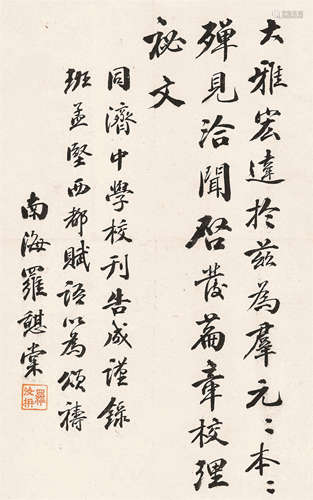 大雅宏達於茲為羣元〻本〻
殫見洽聞啓發篇章校理
祕文
同濟中學校刊告成謹錄
班孟堅西都賦語以為頌禱
南海羅惎棠